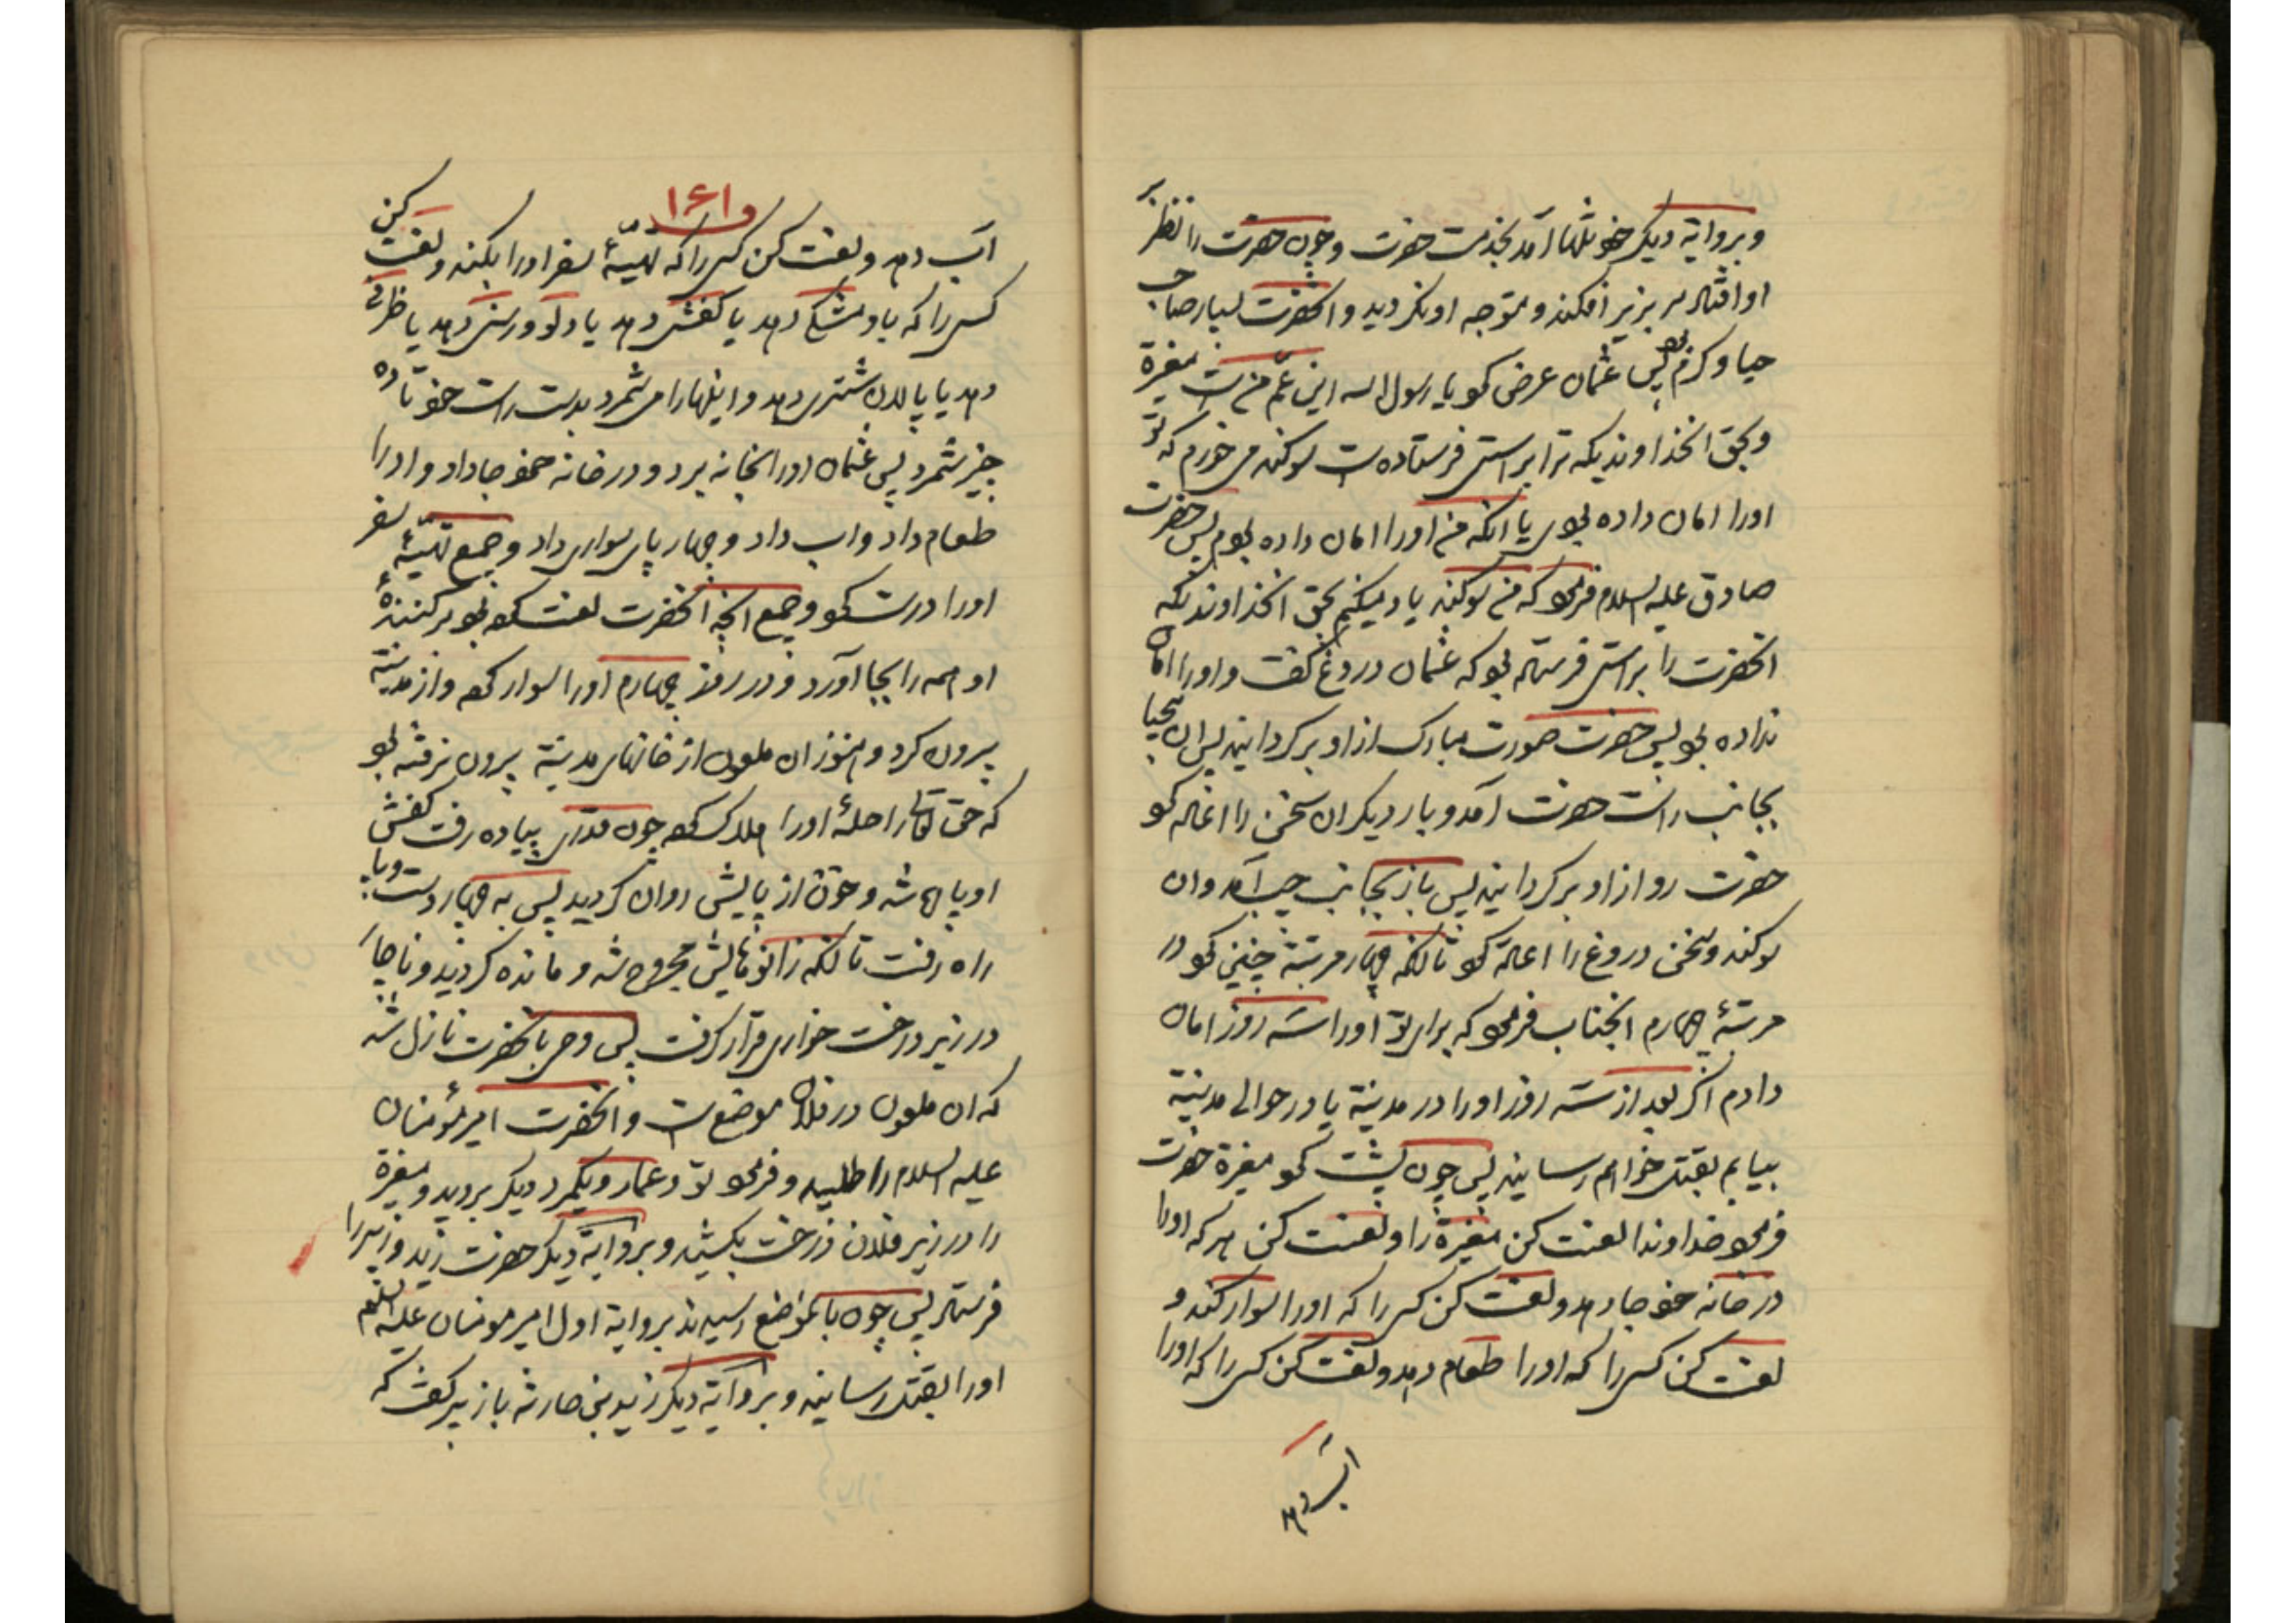 و بروایة دیکر خود تنها آمد بخدمت حضرت و چون حضرت را نظر بر
او افتاد سر بزیر افکند و متوجه او نکردید و آنحضرت بسیار صاحب
حیا و کرم بود پس عثمان عرض کرد یا رسول الله این عم من است مغیرة
و بحق انخداوندیکه ترا براستی فرستاده است سوکند می خورم که تو
اورا امان داده بودی یا انکه من اورا امان داده بودم پس حضرت
صادق علیه السلام فرمود که من سوکند یاد میکنم بحق انخداوندیکه
انحضرت را براستی فرستاد بود که عثمان دروغ کفت و اورا امان
نداده بود پس حضرت صورت مبارک از او بر کردانید پس ان بیحیا
بجانب راست حضرت آمد و بار دیکر ان سخن را اعاده کرد
حضرت رو از او بر کردانید پس باز بجانب چپ آمد و ان
سوکند و سخن دروغ را اعاده کرد تا انکه چهار مرتبة چنین کرد در
مرتبۀ چهارم انجناب فرمود که برای تو اورا سه روز امان
دادم اکر بعد از سه روز اورا در مدینة یا در حوالی مدینة
بیابم بقتل خواهم رسانید پس چون پشت کرد مغیرة حضرت
فرمود خداوندا لعنت کن مغیرة را و لعنت کن هر که اورا
در خانه خود جا دهد و لعنت کن کسی را که اورا سوار کند و
لعنت کن کسی را که اورا طعام دهد و لعنت کن کسی را که اورا
آب دهد
۱۶۱
آب دهد و لعنت کن کسی را که تهیّۀ سفر اورا بکند و لعنت کن
کسی را که باو مشکی دهد یا کفش دهد یا دلو و رسنی دهد یا ظرفی
دهد یا پالان شتری دهد و اینهارا می شمرد بدست راست خود تا ده
چیز شمرد پس عثمان اورا بخانه برد و در خانه خود جا داد و اورا
طعام داد و اب داد و چهار پای سواری داد و جمیع تهیّۀ سفر
اورا درست کرد و جمیع انچه انحضرت لعنت کرده بود بر کنندۀ
او همه را بجا آورد و در روز چهارم اورا سوار کرد و از مدینة
بیرون کرد و هنوز ان ملعون از خانهای مدینة بیرون نرفته بود
که حق تعالی راحلۀ اورا هلاک کرد چون قدری پیاده رفت کفش
او پاره شد و خون از پایش روان کردید پس به چهار دست و پا
راه رفت تا انکه زانوهایش مجروح شد و مانده کردید و ناچار
در زیر درخت خواری قرار کرفت پس وحی بانحضرت نازل شد
که ان ملعون در فلان موضع است و انحضرت امیر مؤمنان
علیه السلام را طلبید و فرمود تو و عمار و یکمرد دیکر بروید و مغیرة
را در زیر فلان درخت بکشید و بروایة دیکر حضرت زید و زبیر را
فرستاد پس چون بانموضع رسیدند بروایة اول امیر مومنان علیه السلام
اورا بقتل رسانید و بروایة دیکر زید بن حارثه بازبیر کفت که